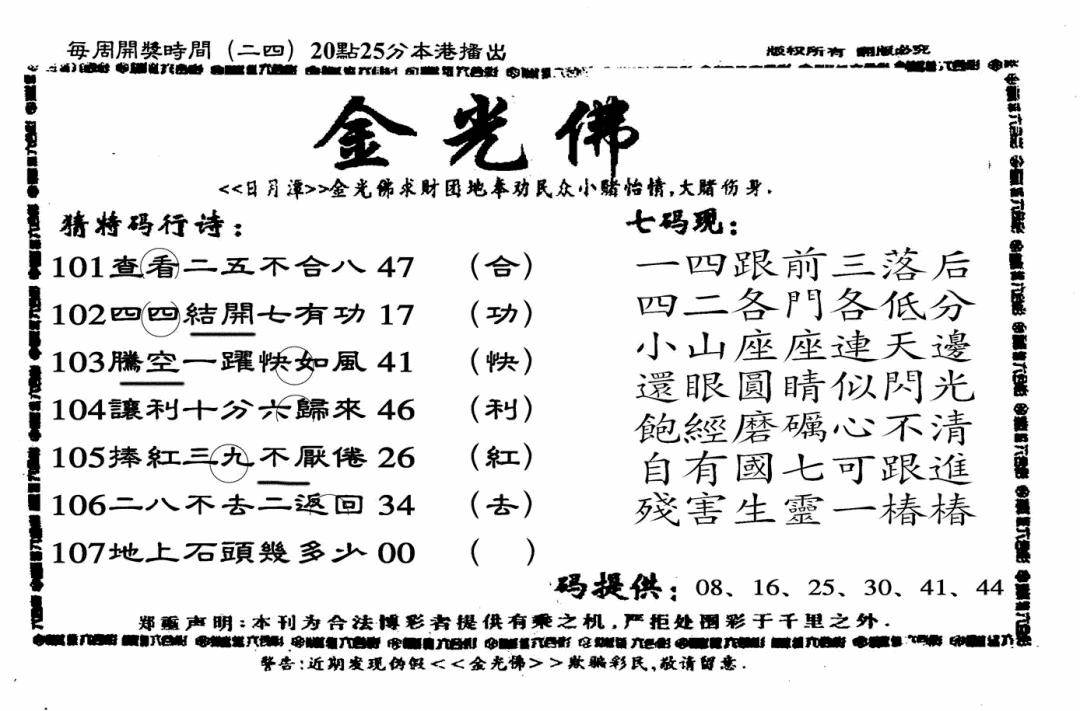 每周開獎時間（二四）20點25分本港播出
版权所有 翻版必究
金光佛
<<日月潭>>金光佛求财团地奉劝民众小赌怡情,大赌伤身.
猜特码行诗：
101查看二五不合八 47 （合）
102四四結開七有功 17 （功）
103騰空一躍快如風 41 （快）
104讓利十分六歸來 46 （利）
105捧紅三九不厭倦 26 （紅）
106二八不去二返回 34 （去）
107地上石頭幾多少 00 （ ）
七码现：
一四跟前三落后
四二各門各低分
小山座座連天邊
還眼圓睛似閃光
飽經磨礪心不清
自有國七可跟進
殘害生靈一樁樁
码提供：08、16、25、30、41、44
郑重声明:本刊为合法博彩者提供有乘之机,严拒处围彩于千里之外.
警告:近期发现伪假<<金光佛>>欺骗彩民,敬请留意.